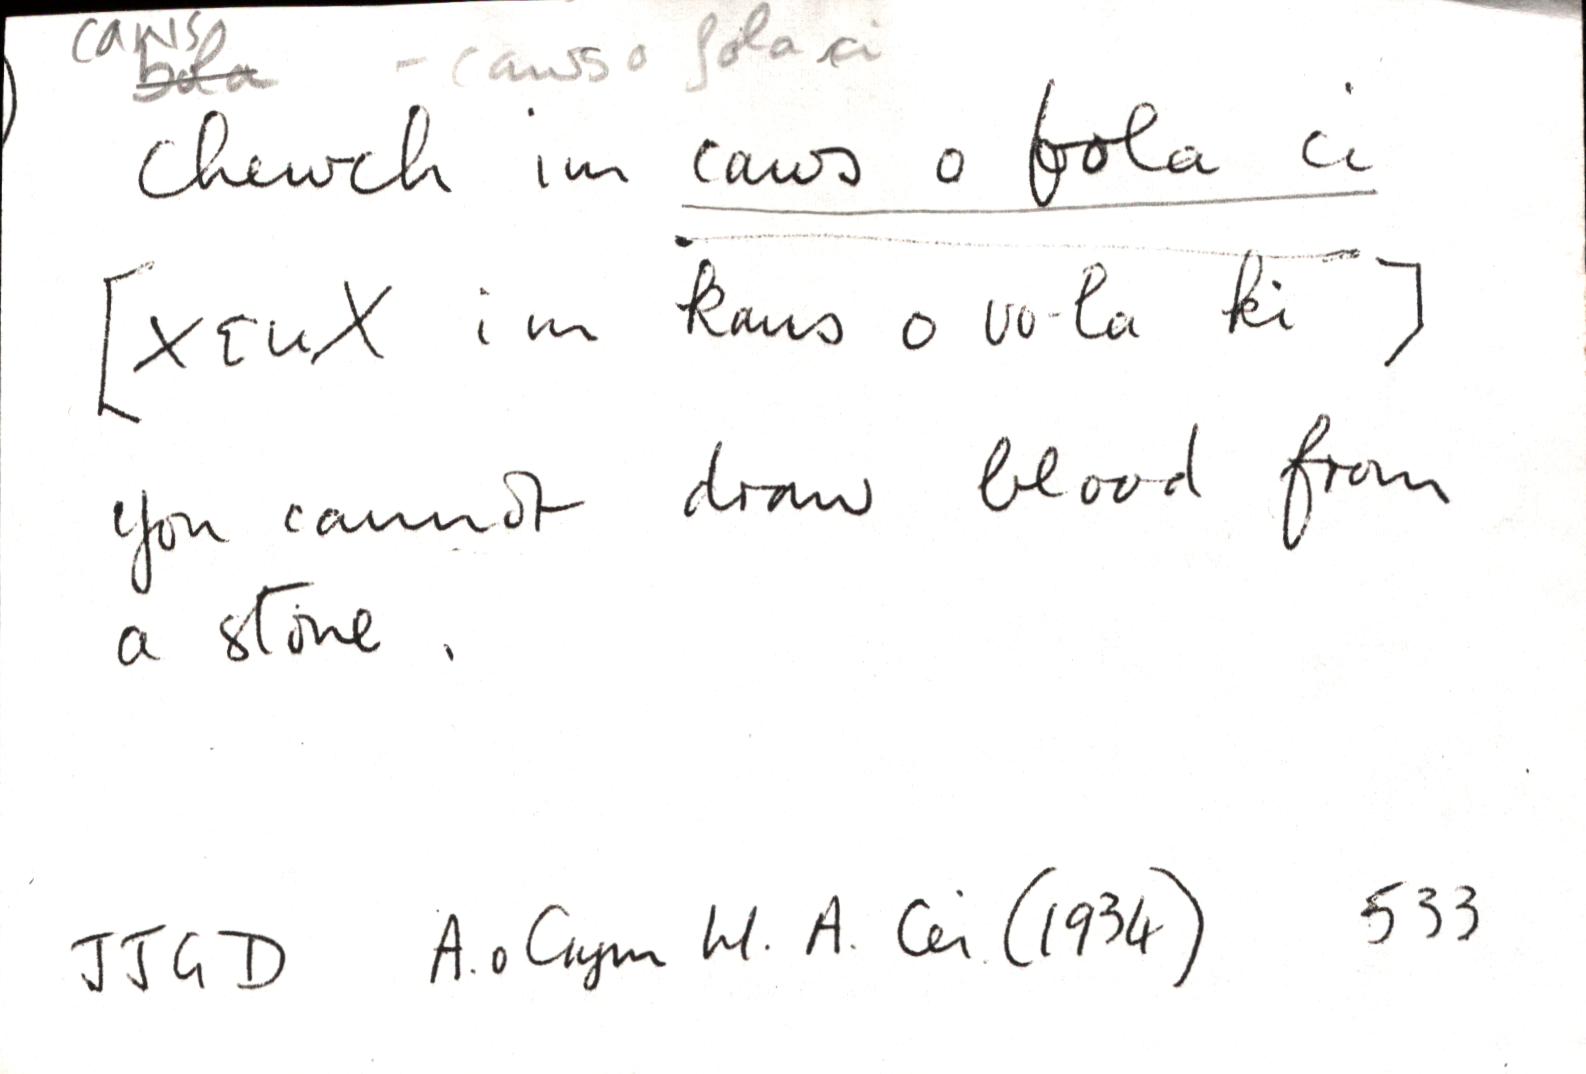 caws
bola - caws o fola ci
Chewch im caws o fola ci
[XɛuX im kaus o vo·la ki]
you cannot draw blood from
a stone.
JJGD A. o Cwm W. A. Cei. (1934) 533